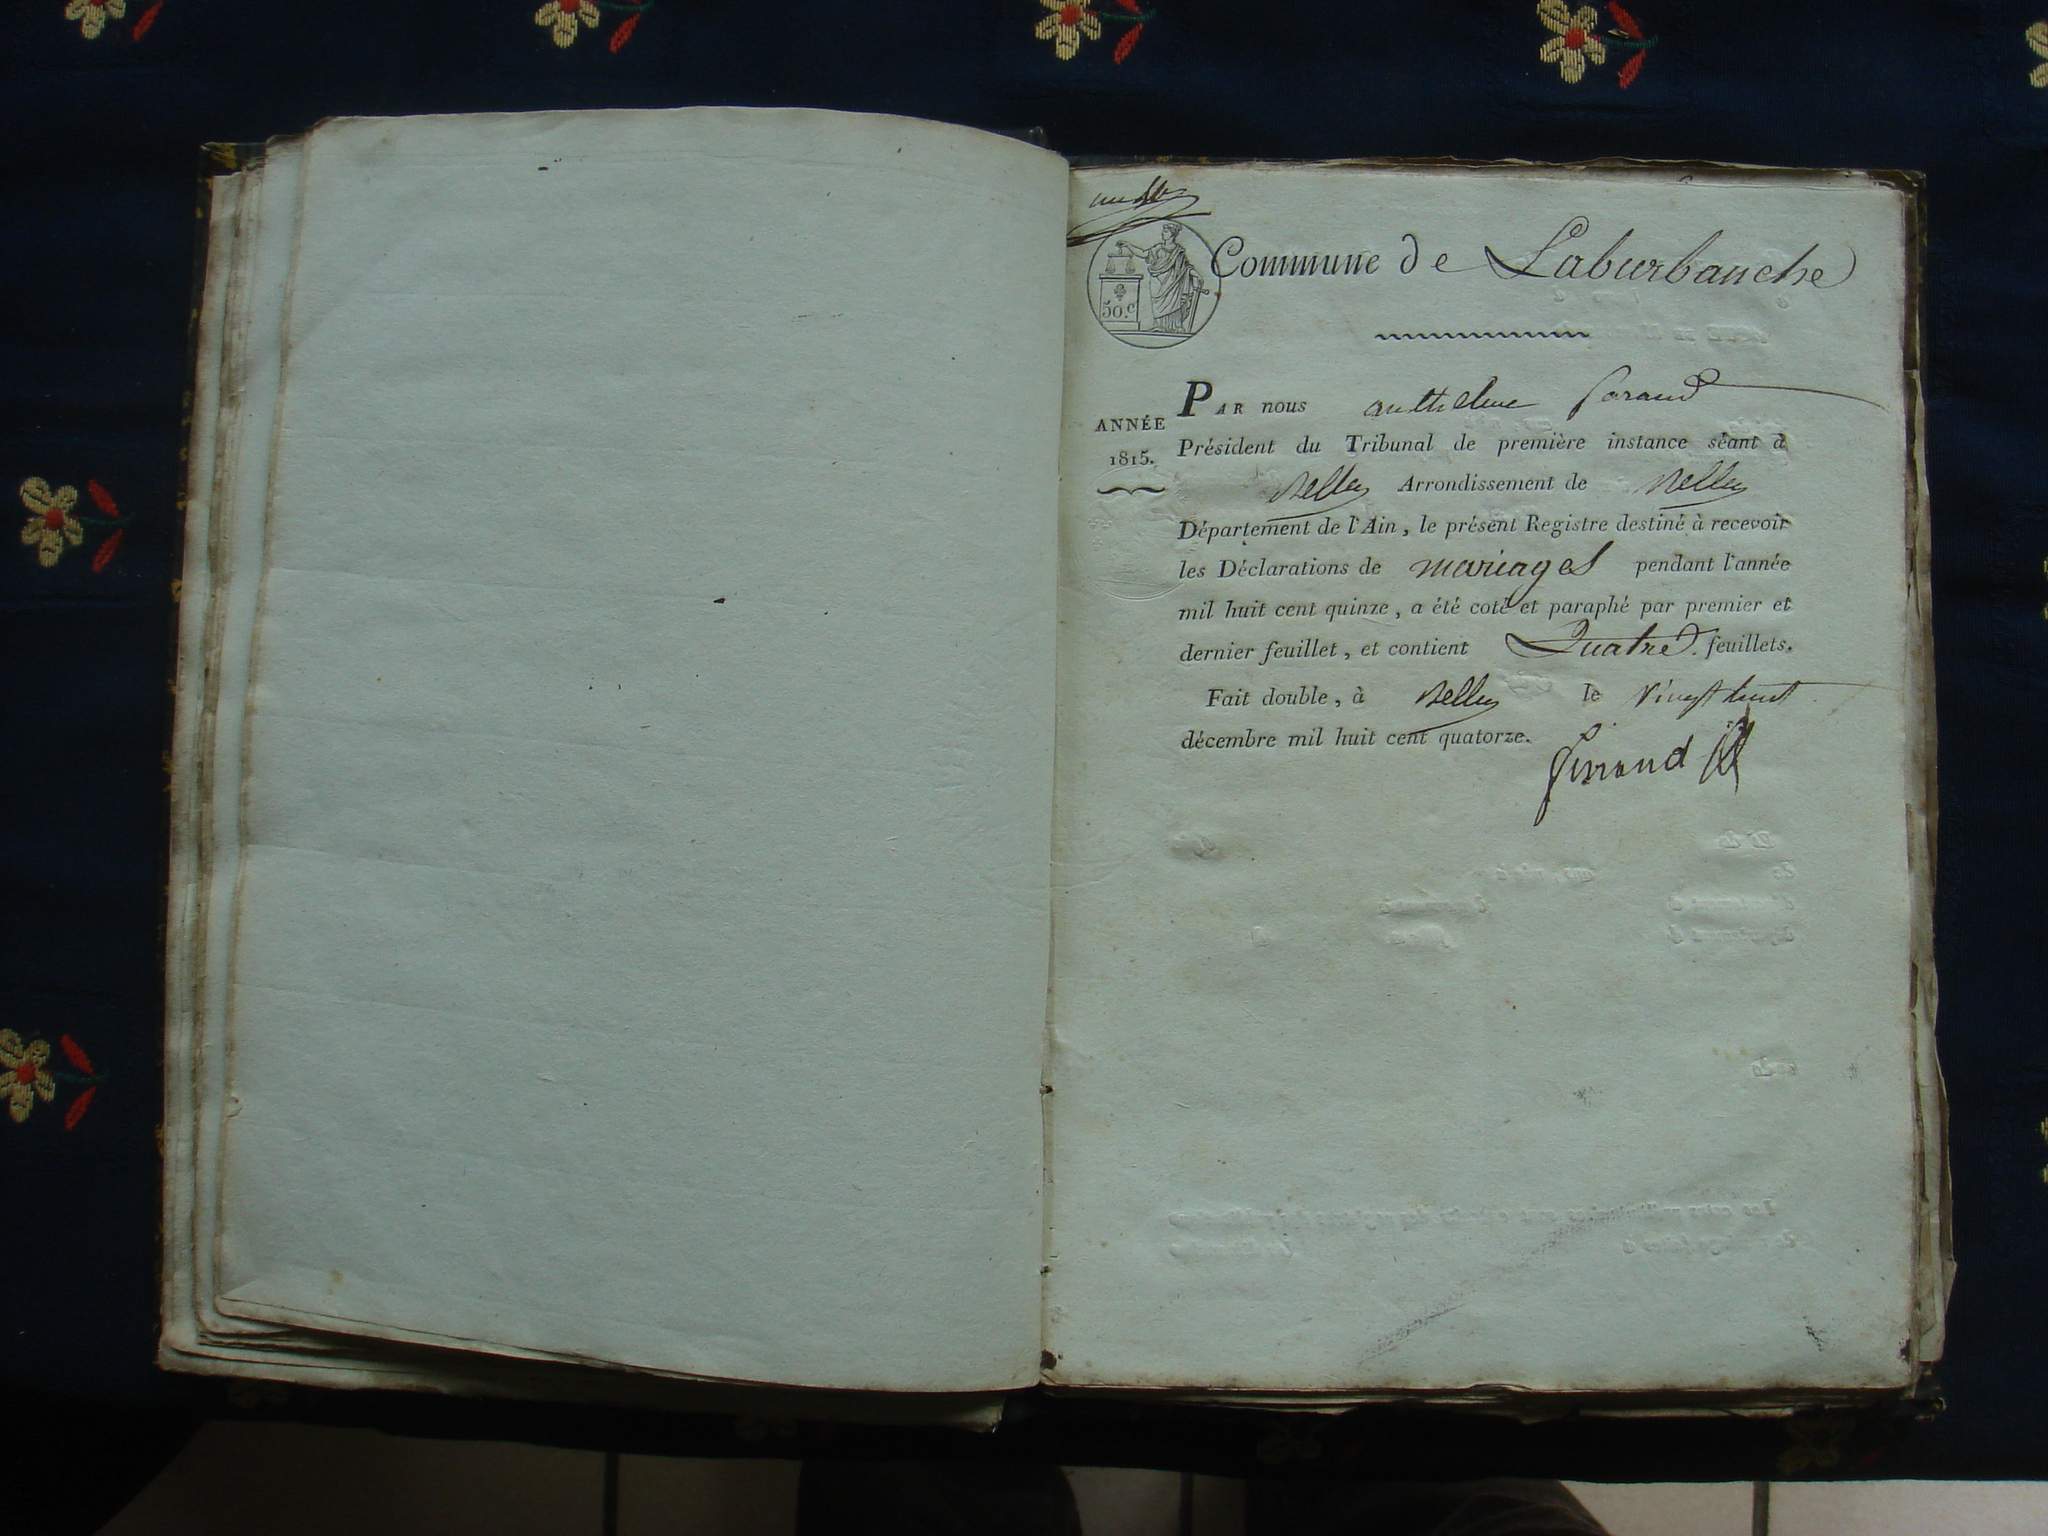 50.c
Commune de Laburbanche
ANNÉE
1815.
PAR nous anthelme
Président du Tribunal de première instance séant à
Belley Arrondissement de Belley
Département de l'Ain, le présent Registre destiné à recevoir
les Déclarations de mariages pendant l'année
mil huit cent quinze, a été coté et paraphé par premier et
dernier feuillet, et contient Quatre feuillets.
Fait double, à Belley le vingt huit
décembre mil huit cent quatorze.